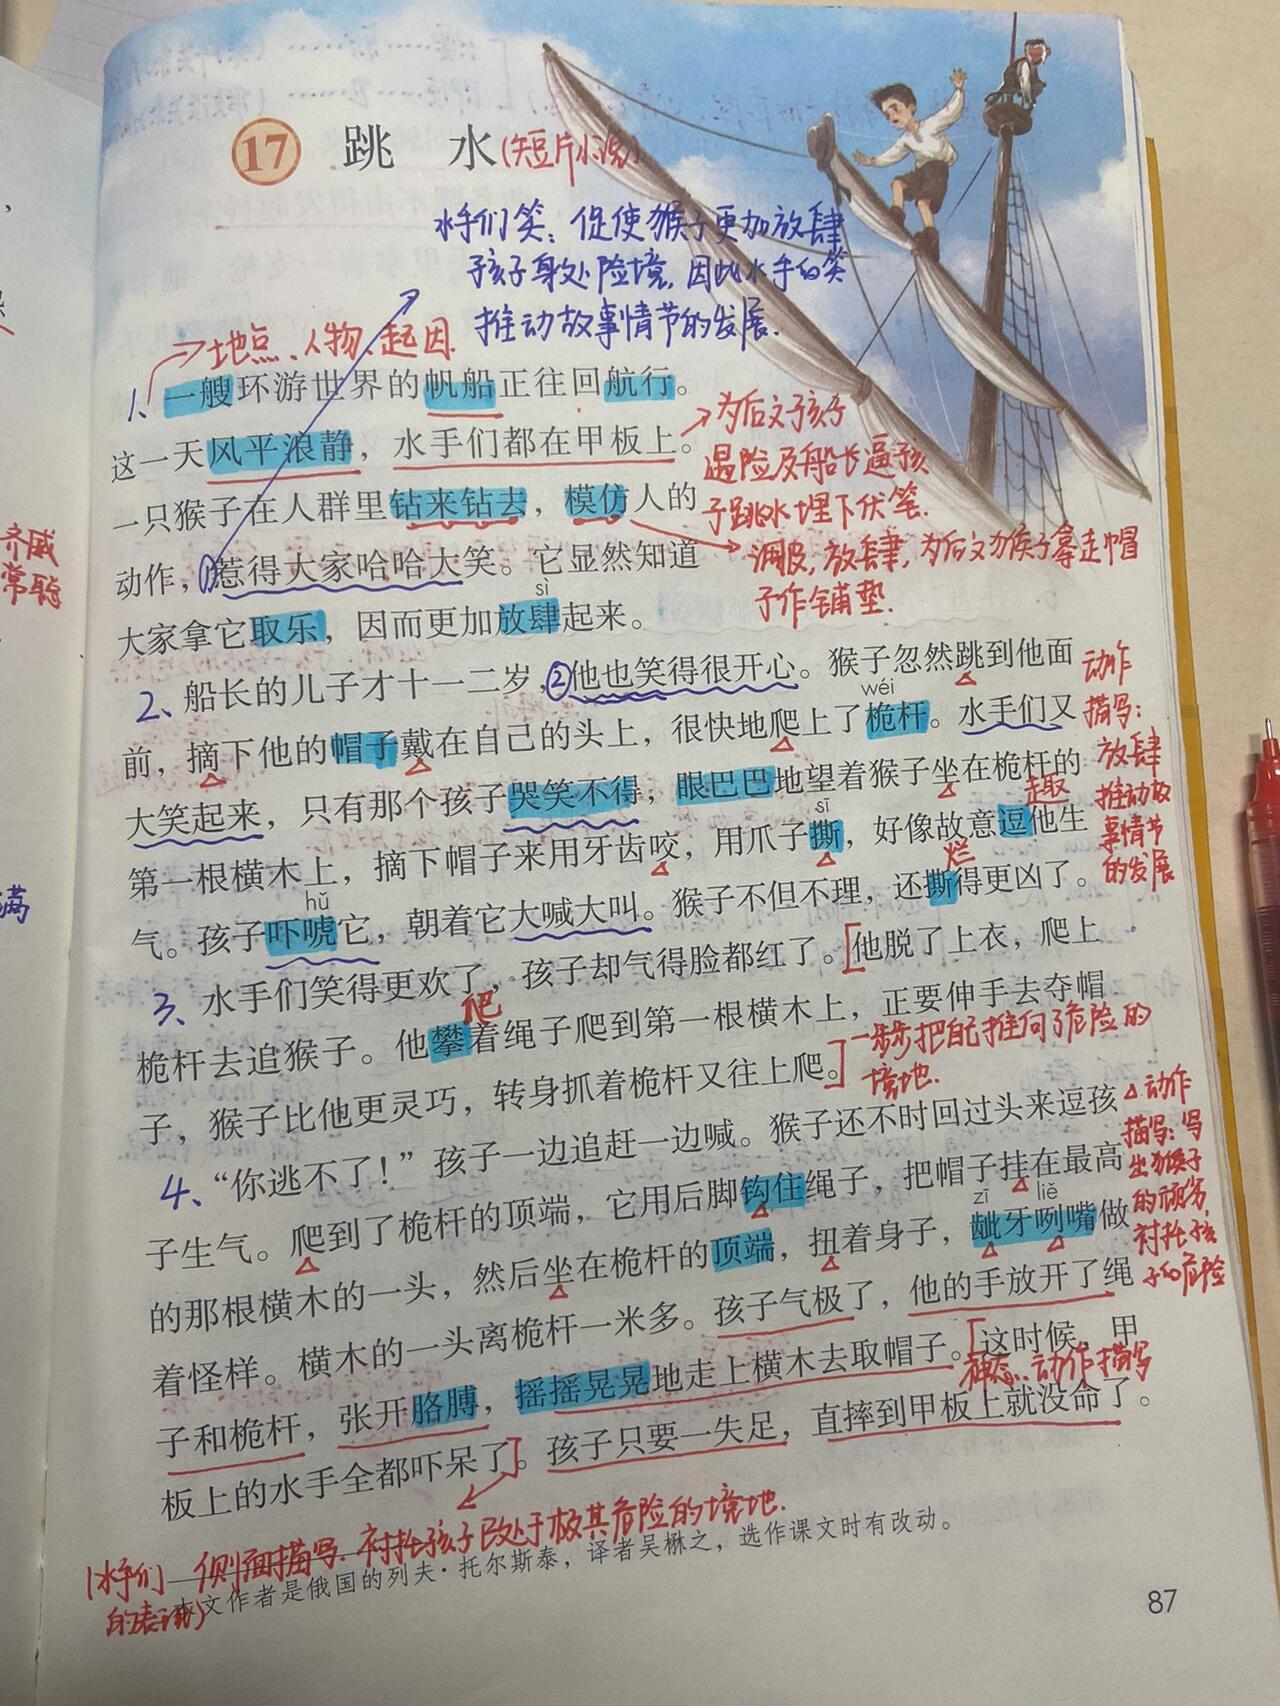 17 跳 水(短片小说)
水手们笑：促使猴子更加放肆
孩子身处险境，因此水手的笑
推动故事情节的发展.
地点、人物、起因.
1、一艘环游世界的帆船正往回航行。
这一天风平浪静，水手们都在甲板上。
为后文孩子
遇险及船长逼孩
子跳水埋下伏笔.
一只猴子在人群里钻来钻去，模仿人的
调皮，放肆，为后文猴子拿走帽
子作铺垫.
动作，①惹得大家哈哈大笑。它显然知道
sì
大家拿它取乐，因而更加放肆起来。
2、船长的儿子才十一二岁，②他也笑得很开心。猴子忽然跳到他面
wéi
前，摘下他的帽子戴在自己的头上，很快地爬上了桅杆。水手们又
大笑起来，只有那个孩子哭笑不得，眼巴巴地望着猴子坐在桅杆的
sī 趣
第一根横木上，摘下帽子来用牙齿咬，用爪子撕，好像故意逗他生
hǔ 烂
气。孩子吓唬它，朝着它大喊大叫。猴子不但不理，还撕得更凶了。
动作
描写：
放肆
推动故
事情节
的发展
3、水手们笑得更欢了，孩子却气得脸都红了。[他脱了上衣，爬上
爬
桅杆去追猴子。他攀着绳子爬到第一根横木上，正要伸手去夺帽
子，猴子比他更灵巧，转身抓着桅杆又往上爬。]
一步步把自己推向了危险的
境地.
4、“你逃不了！”孩子一边追赶一边喊。猴子还不时回过头来逗孩
子生气。爬到了桅杆的顶端，它用后脚钩住绳子，把帽子挂在最高
zī liě
的那根横木的一头，然后坐在桅杆的顶端，扭着身子，龇牙咧嘴做
着怪样。横木的一头离桅杆一米多。孩子气极了，他的手放开了绳
子和桅杆，张开胳膊，摇摇晃晃地走上横木去取帽子。[这时候，甲
神态、动作描写
板上的水手全都吓呆了]。孩子只要一失足，直摔到甲板上就没命了。
△动作
描写：写
出猴子
的顽劣，
衬托孩
子的危险
侧面描写.衬托孩子已处于极其危险的境地.
(水手们
的表现)
本文作者是俄国的列夫·托尔斯泰，译者吴楙之，选作课文时有改动。
87
齐威
常聪
满